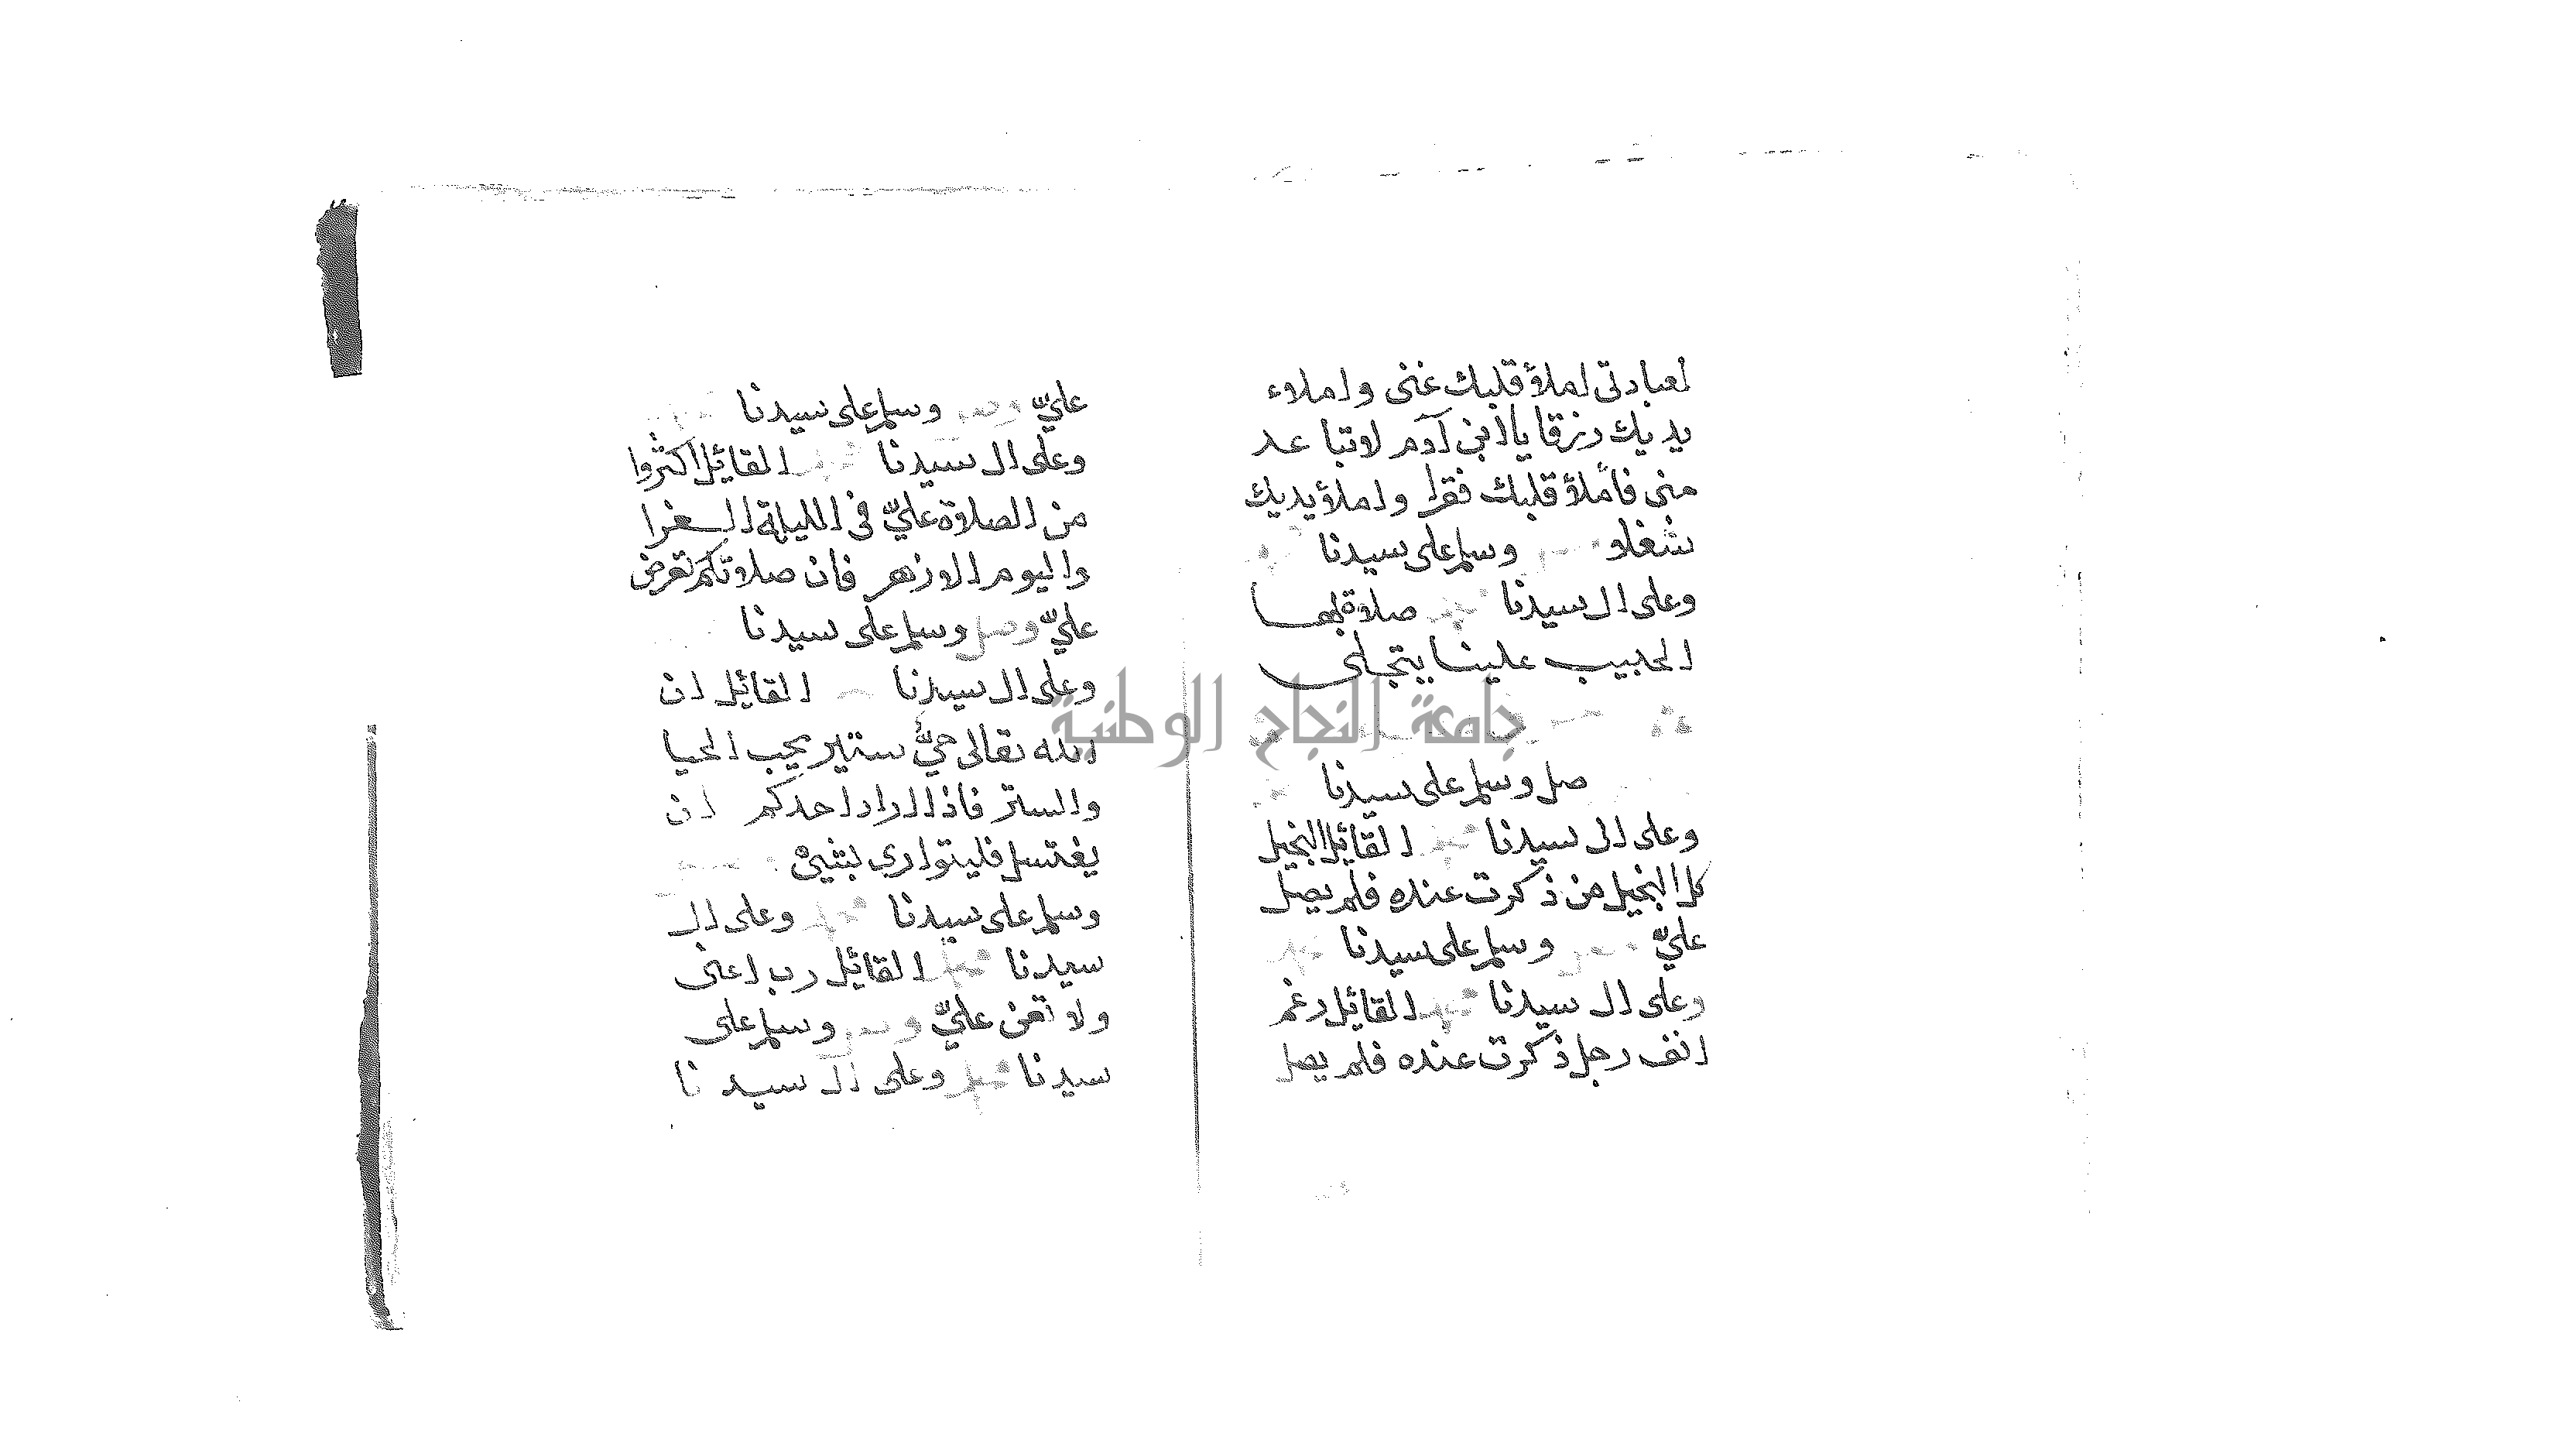 لعبادتى املأ قلبك غنى واملاء
يديك رزقا يا ابن آدم لا تباعد
منى فاملأ قلبك فقرا واملأ يديك
شغلا وسلم على سيدنا
وعلى ال سيدنا محمد صلاة بهـا
الحبيب علينـا يتجلى
صل وسلم على سيدنا
وعلى ال سيدنا محمد القائل البخيل
كل البخيل من ذكرت عنده فلم يصل
عليّ وسلم على سيدنا
وعلى ال سيدنا محمد القائل رغم
انف رجل ذكرت عنده فلم يصل
عليّ وصل وسلم على سيدنا
وعلى ال سيدنا محمد القائل اكثروا
من الصلاة عليّ فى الليلة الـغرا
واليوم الازهر فان صلاتكم تعرض
عليّ وصل وسلم على سيدنا
وعلى ال سيدنا القائل ان
الله تعالى حيّ ستير يحب الحيا
والستر فاذا اراد احدكم ان
يغتسل فليتوارى بشئ
وسلم على سيدنا محمد وعلى ال
سيدنا محمد القائل رب اعنى
ولا تعن عليّ وصل وسلم على
سيدنا محمد وعلى ال سيدنا
جامعة النجاح الوطنية